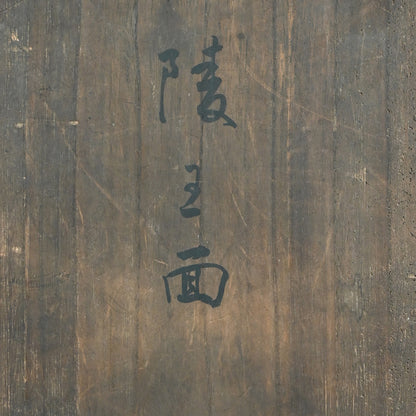 陵王面